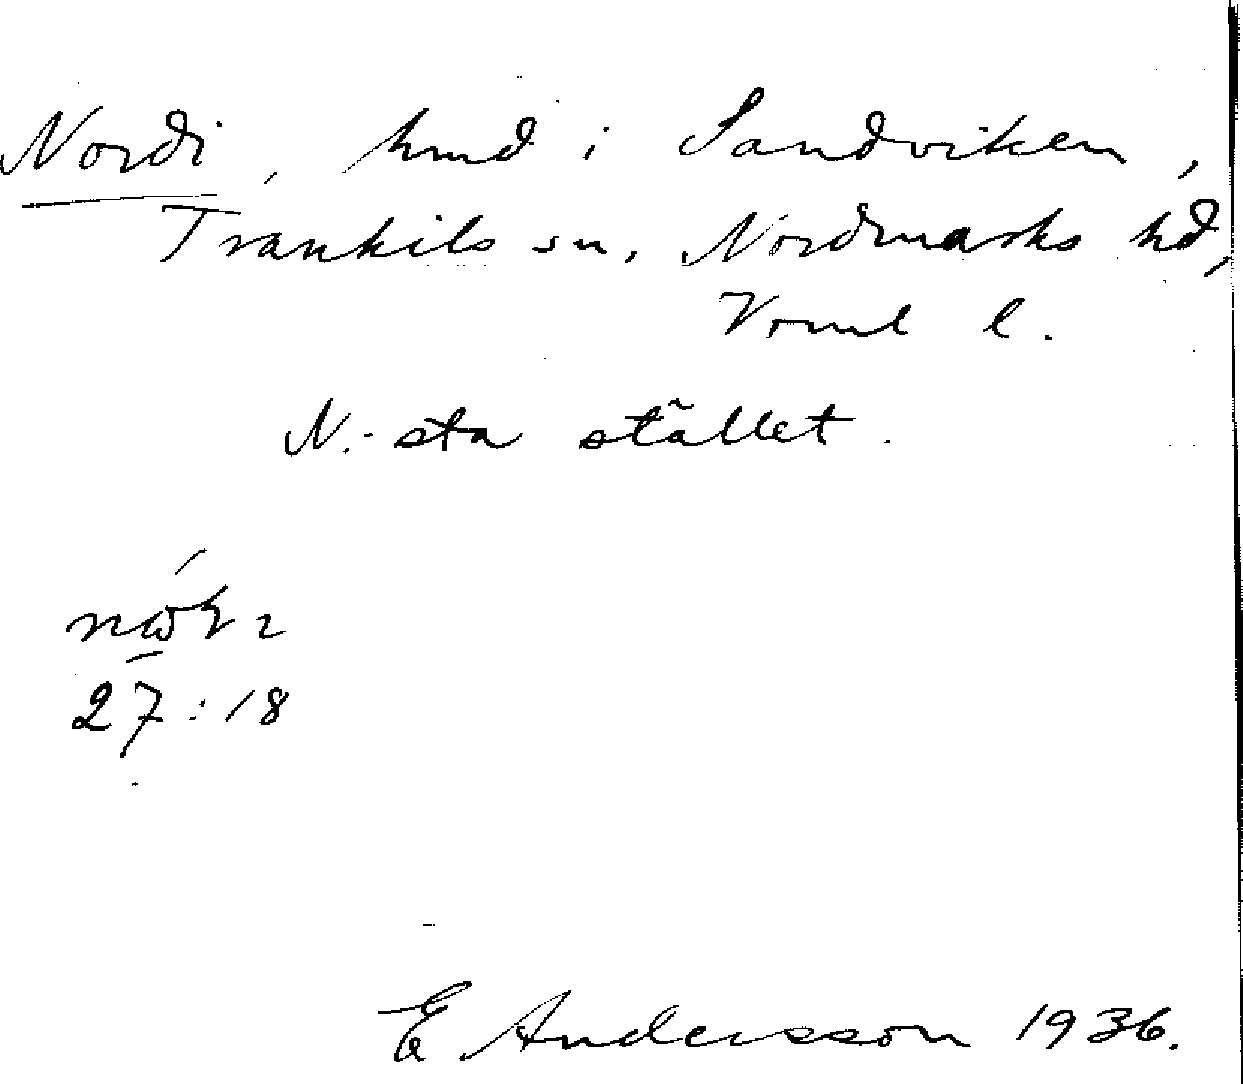 Nordi, hmd i Sandviken,
Trankils sn, Nordmarks hd,
Vrml l.
N.-sta stället.
27:18
E Andersson 1936.